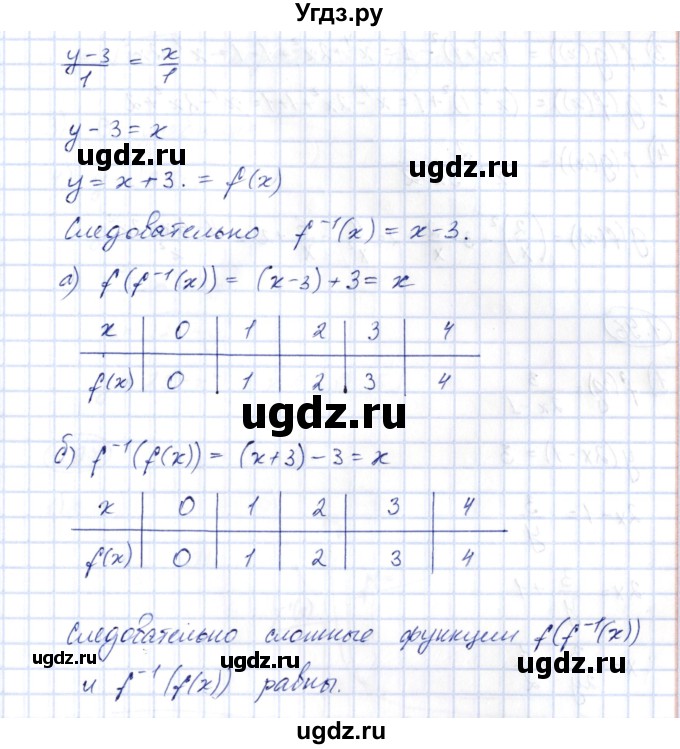 Угдз.ру
y-3/1 = x/1
y-3=x
ugdz.ru ugdz.ru
y=x+3. = f(x)
Следовательно f⁻¹(x) = x-3.
а) f(f⁻¹(x)) = (x-3)+3= x
x | 0 | 1 | 2 | 3 | 4
f(x) | 0 | 1 | 2 | 3 | 4
ugdz.ru
б) f⁻¹(f(x)) = (x+3)-3=x
x | 0 | 1 | 2 | 3 | 4
f(x) | 0 | 1 | 2 | 3 | 4
Следовательно сложные функции f(f⁻¹(x))
ugdz.ru ugdz.ru ugdz.ru
и f⁻¹(f(x)) равны.
ugdz.ru